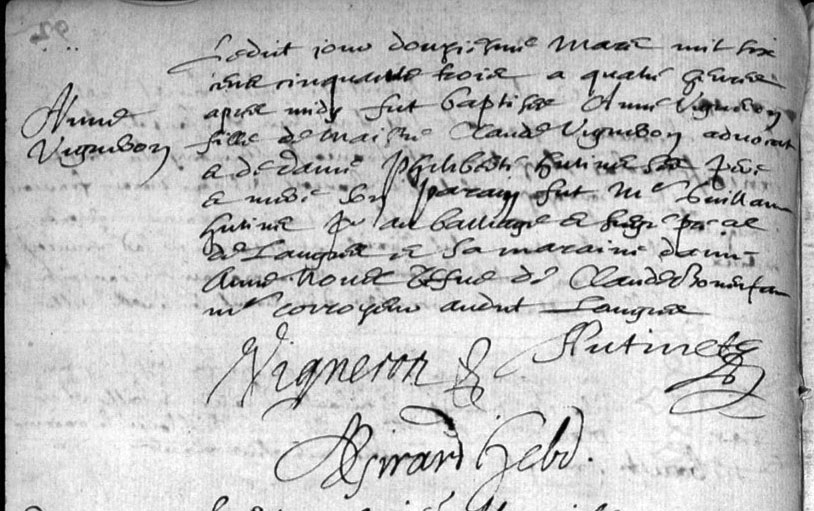 Anne
Vigneron
Ledict jour douziesme Mars mil six
cens cinquante trois a quatre heures
apres midy fut baptisée Anne Vigneron
fille de Maistre Claude Vigneron advocat
& de dame Philiberte hutinet ses pere
& mere son parain fut Me Guillaume
hutinet au bailliage & siege
de Langres & sa maraine dame
Anne vefve de Claude
me corroyeur audict Langres
Vigneron
Hutinet
Girard hebd.